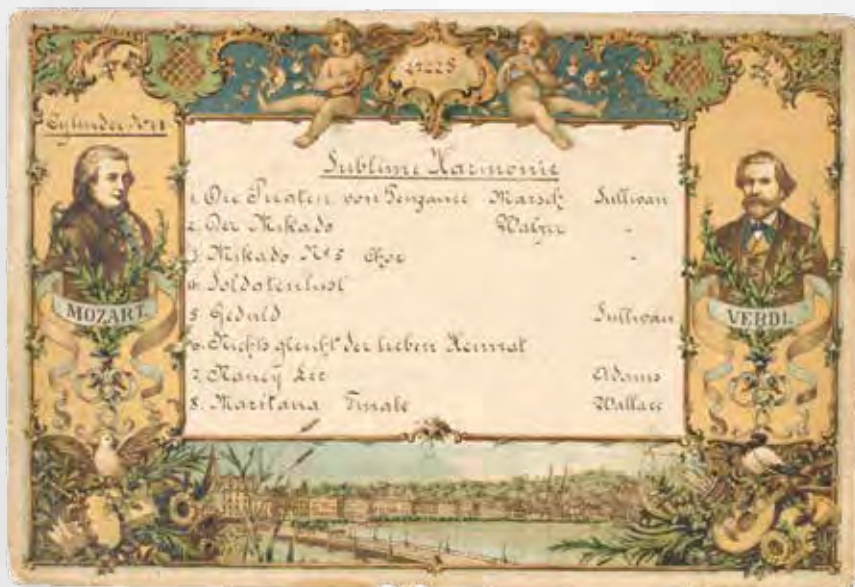 27228
Cylinder No
MOZART.
VERDI.
Sublime Harmonie
1. Die Piraten von Penzance Marsch Sullivan
2. Der Mikado Walzer "
3. Mikado No 5 Chor "
4. Soldatenlust
5. Geduld Sullivan
6. Nichts gleicht der lieben Heimat
7. Nancy Lee Adams
8. Maritana Finale Wallace